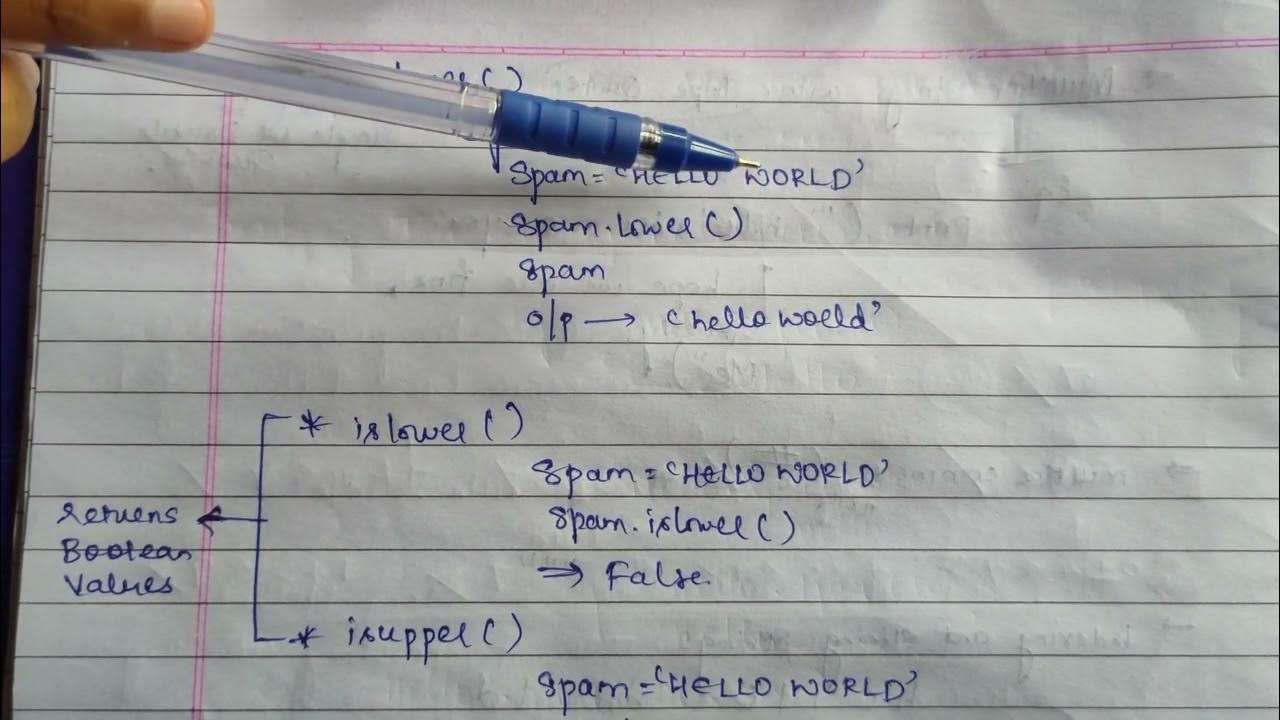 Spam = 'HELLO WORLD'
Spam.lower()
Spam
o/p → 'hello world'
* islower()
Spam = 'HELLO WORLD'
Spam.islower()
⇒ False.
returns
Boolean
Values
* isupper()
Spam = 'HELLO WORLD'